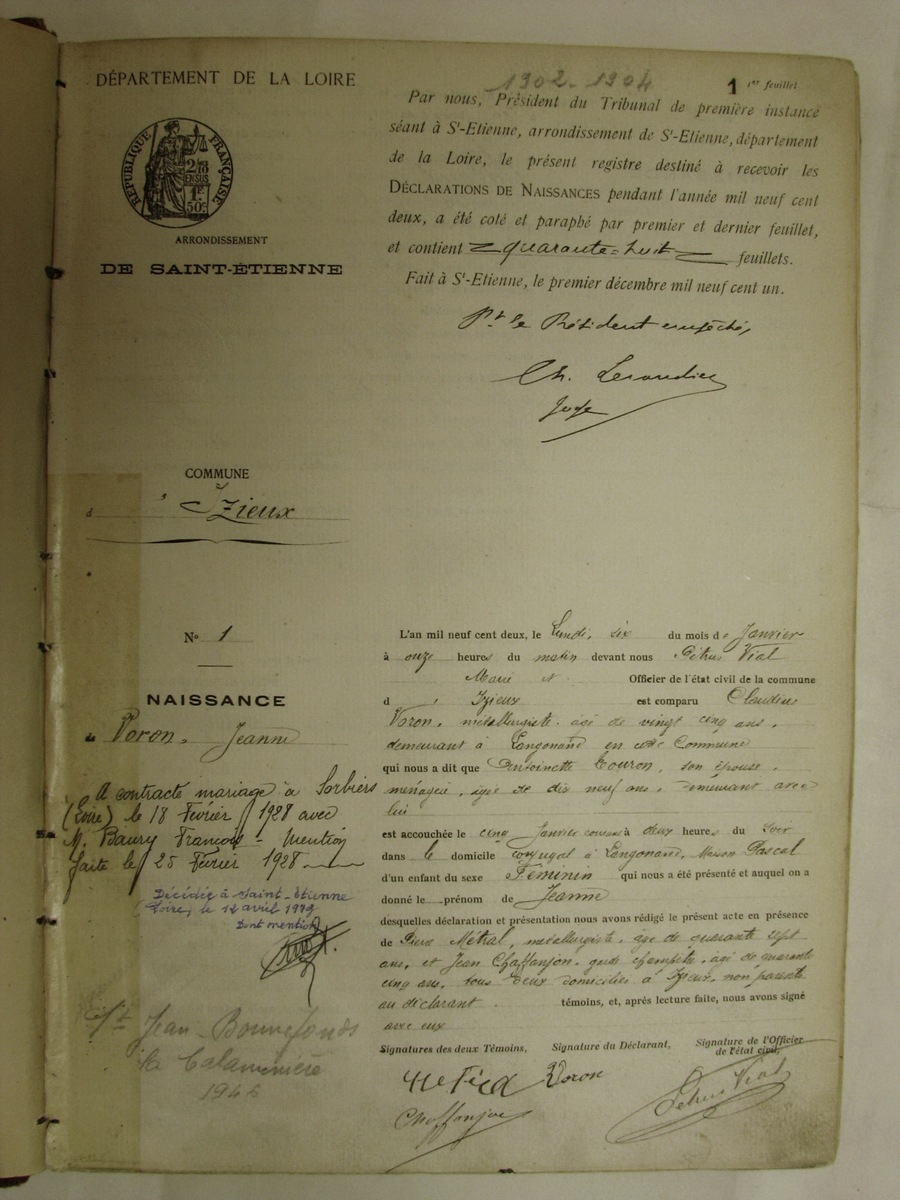 DÉPARTEMENT DE LA LOIRE
RÉPUBLIQUE FRANÇAISE
2/10
EN SUS
1F
50c
ARRONDISSEMENT
DE SAINT-ÉTIENNE
1902-1904
1 1er feuillet
Par nous, Président du Tribunal de première instance
séant à St-Etienne, arrondissement de St-Etienne, département
de la Loire, le présent registre destiné à recevoir les
DÉCLARATIONS DE NAISSANCES pendant l'année mil neuf cent
deux, a été coté et paraphé par premier et dernier feuillet,
et contient quarante-huit feuillets.
Fait à St-Etienne, le premier décembre mil neuf cent un.
Pr le Président empêché,
Ch.
Juge
COMMUNE
d' Izieux
No 1
NAISSANCE
de Voron, Jeanne
A contracté mariage à Sorbiers
(Loire) le 18 Février 1928 avec
M. Baury François - Mention
faite le 25 Février 1928
Décédée à Saint-Etienne
(Loire) le 12 avril 1979
Dont mention
Jean Bonnefonds
la Calaminière
L'an mil neuf cent deux, le Lundi, six du mois de Janvier
à onze heures du matin devant nous Pétrus Vial
Maire Officier de l'état civil de la commune
d' Izieux est comparu Claudius
Voron, métallurgiste, âgé de vingt cinq ans,
demeurant à Langonand en cette Commune
qui nous a dit que Antoinette Couron, son épouse,
ménagère, âgée de dix neuf ans, demeurant avec
lui
est accouchée le cinq Janvier courant à deux heures du Soir
dans le domicile conjugal à Langonand, Maison Pascal
d'un enfant du sexe Féminin qui nous a été présenté et auquel on a
donné le prénom de Jeanne
desquelles déclaration et présentation nous avons rédigé le présent acte en présence
de Pierre Métral, métallurgiste, âgé de quarante sept
ans, et Jean Chaffanjon, garde champêtre, âgé de quarante
cinq ans, tous deux domiciliés à Izieux, non parents
au déclarant témoins, et, après lecture faite, nous avons signé
avec eux
Signatures des deux Témoins, Signature du Déclarant, Signature de l'Officier
de l'état civil,
Voron
Chaffanjon
Pétrus Vial